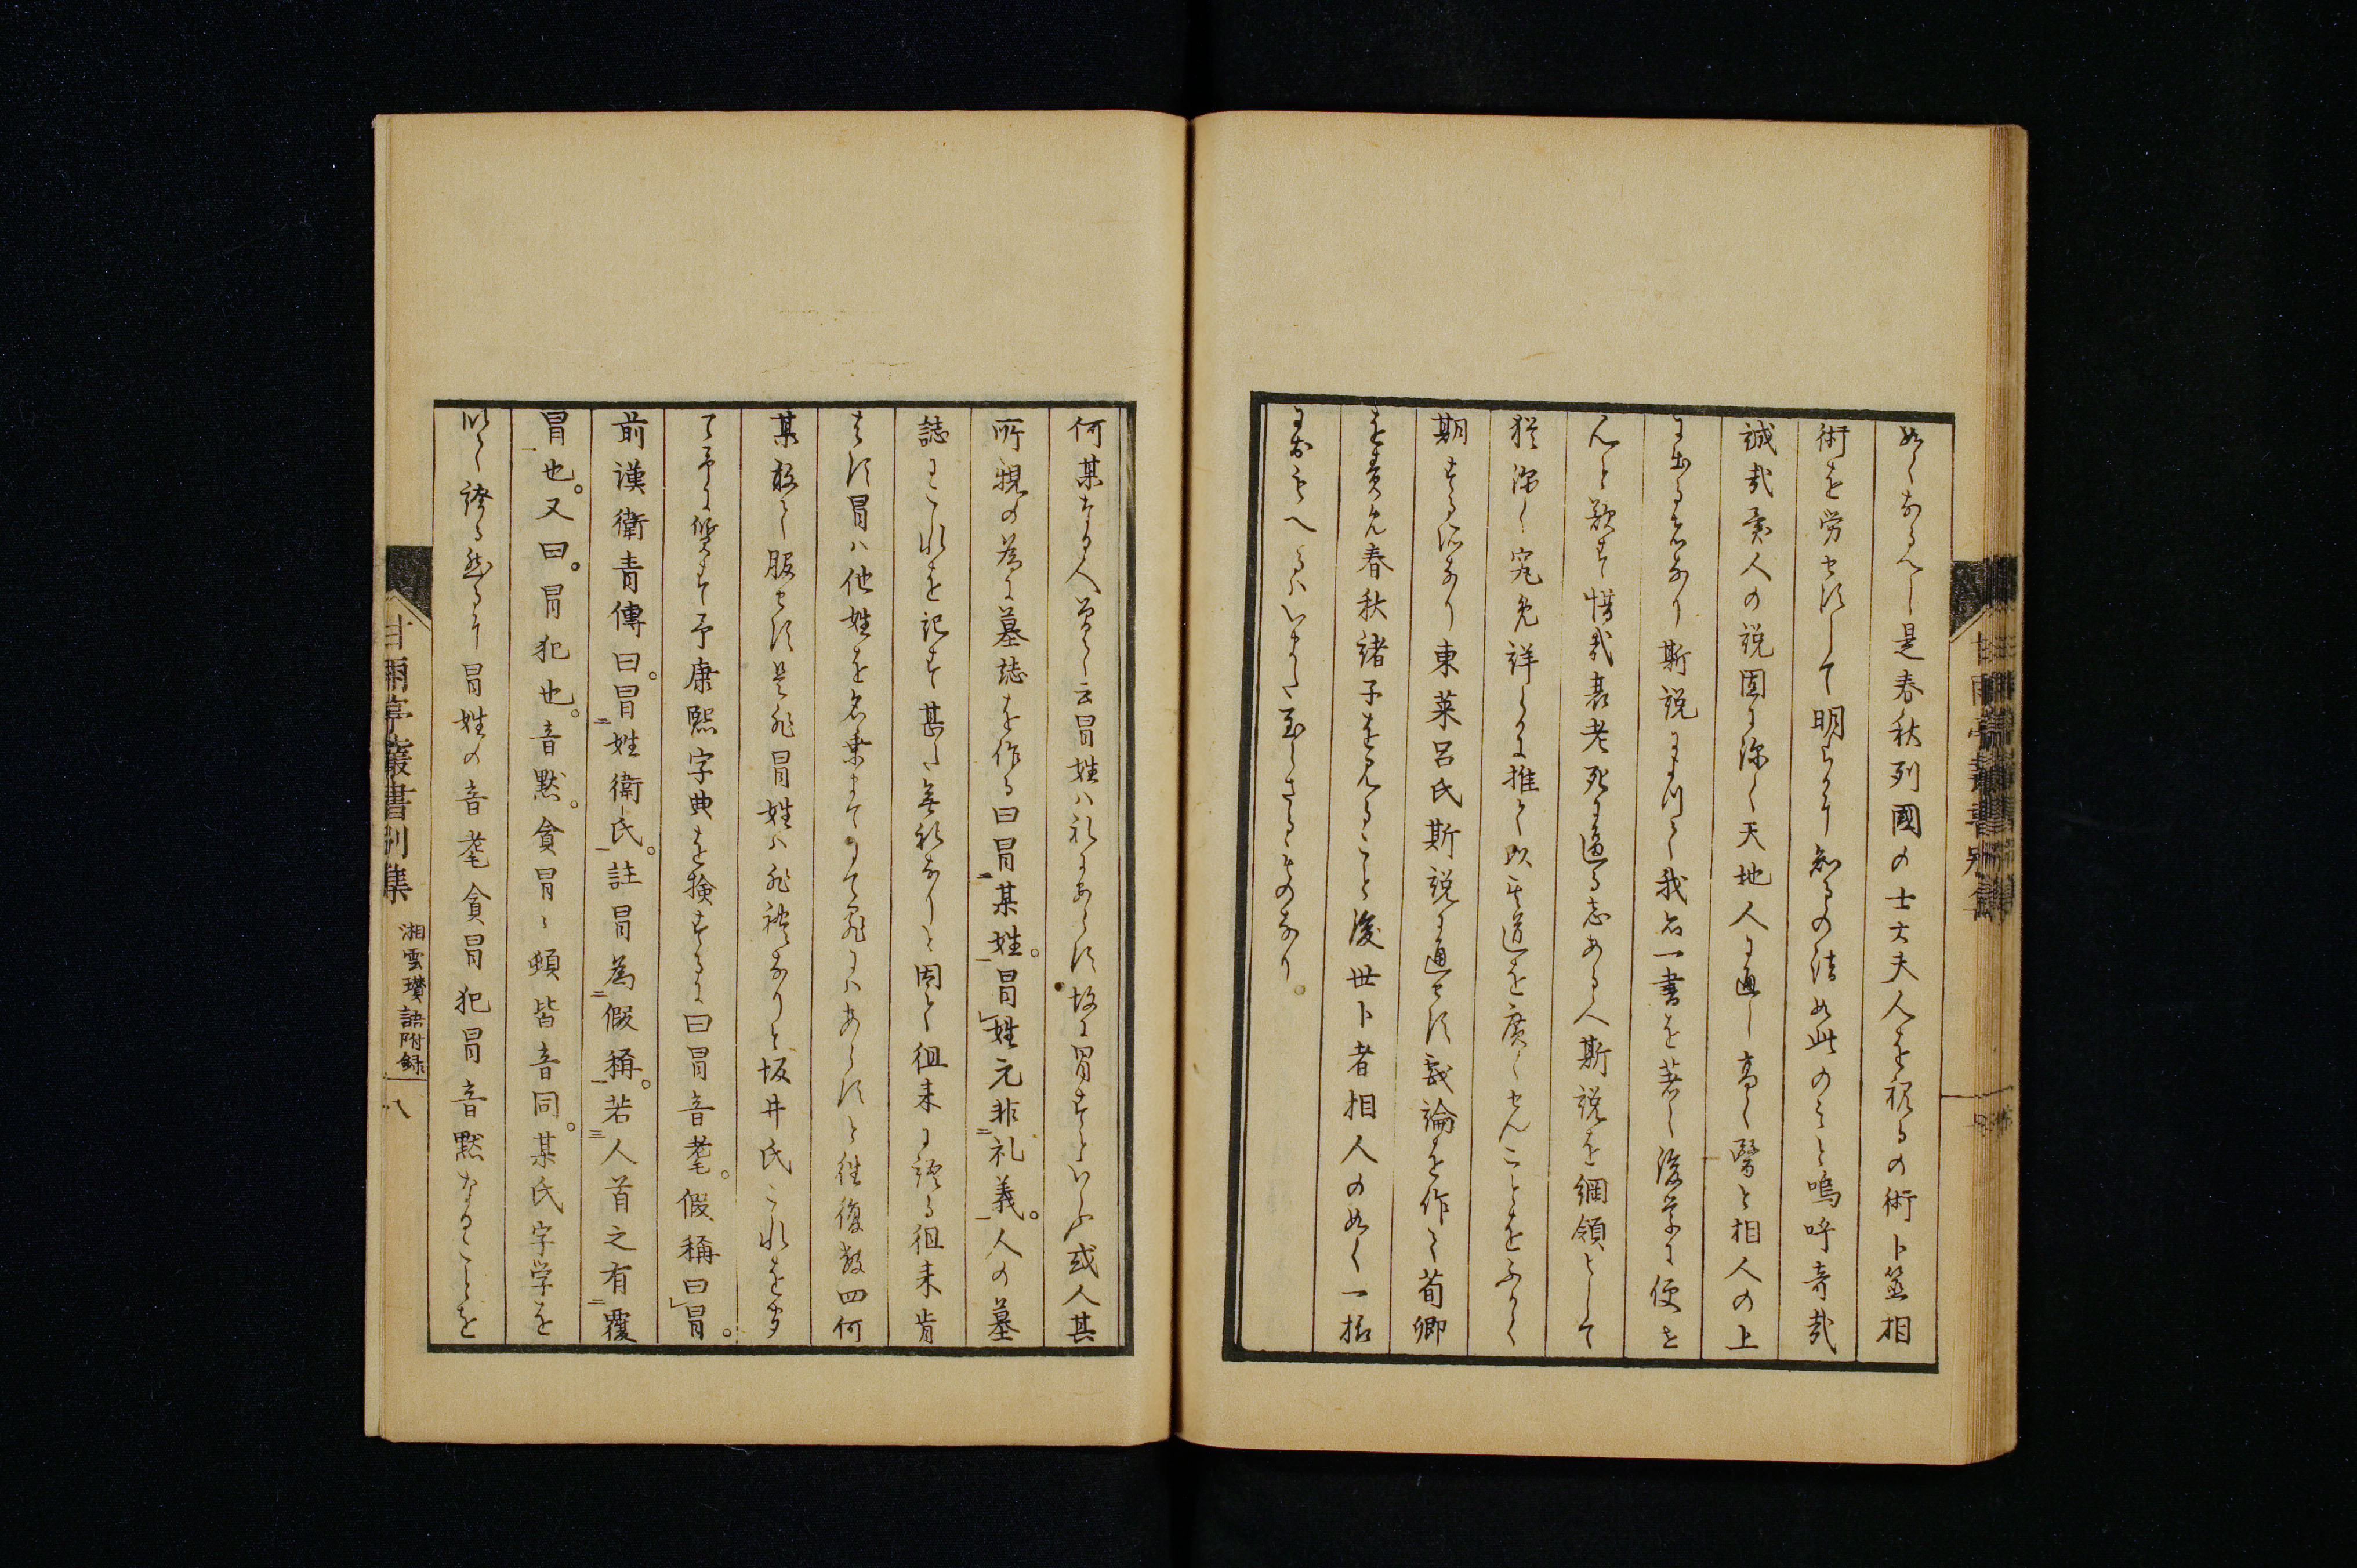 如くなるへし是春秋列國の士大夫人を視るの術卜筮相
術を労せすして明らかに知るの法如此のみと嗚呼奇哉
誠哉異人の説固に深く天地人に通し高く醫と相人の上
に出る者なり斯説によつて我名一書を著し後学に便せ
んと歎す惜哉衰老死に逼る志ある人斯説を綱領として
猶深く究め詳らかに推して以て道を廣くせんことをふかく
期する所なり東萊呂氏斯説に通せす或論を作て荀卿
を責め春秋諸子を見ること後世卜者相人の如く一概
におもへるはいまた至らさるものなり
何某なる人曽て云冒姓ハ礼にあらす故に冒すといふ或人其
所親の為に墓誌を作る曰冒某姓。冒姓元非礼義。人の墓
誌にこれを記す甚た無礼なりと因て徂来に語る徂来肯
せす冒ハ他姓を名乗まてにて罪にハあらすと往復数四何
某敢て服せす是非冒姓ハ非禮なりと坂井氏これを聞
て予に質す予康熙字典を検するに曰冒音耄。假稱曰冒。
前漢衛青傳曰。冒姓衛氏。註冒為假稱。若人首之有覆
冒也。又曰。冒犯也。音黙。貪冒〻頓皆音同。某氏字学を
以て誇る然るに冒姓の音耄貪冒犯冒音黙なることを
甘雨亭叢書別集 湘雲瓚語附録 八